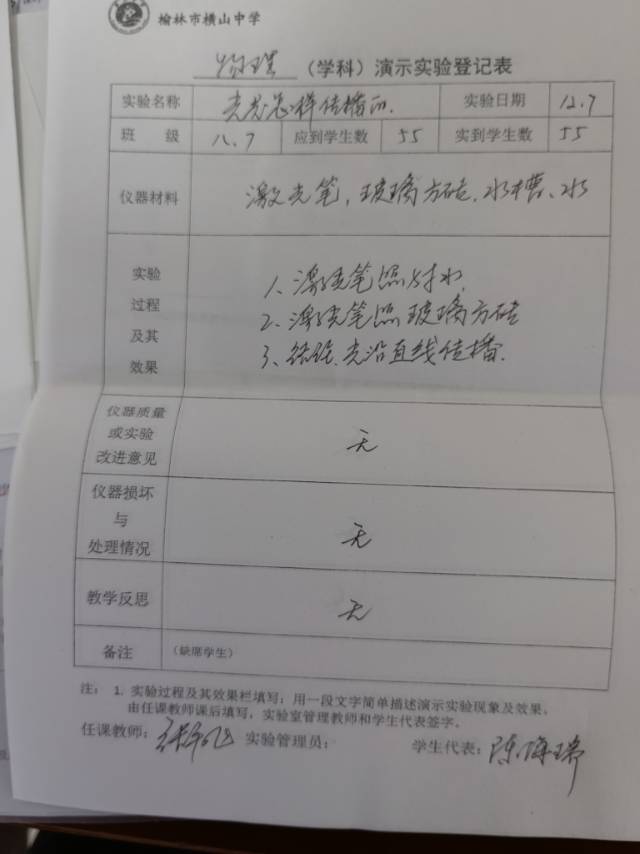 榆林市横山中学
物理（学科）演示实验登记表
实验名称 光是怎样传播的. 实验日期 12.7
班级 八.7 应到学生数 55 实到学生数 55
仪器材料 激光笔,玻璃方砖.水槽、水
实验过程及其效果
1、激光笔照射水
2、激光笔照玻璃方砖
3、结论.光沿直线传播.
仪器质量或实验改进意见 无
仪器损坏与处理情况 无
教学反思 无
备注 （缺席学生）
注： 1. 实验过程及其效果栏填写：用一段文字简单描述演示实验现象及效果。
由任课教师课后填写，实验室管理教师和学生代表签字。
任课教师： 实验管理员： 学生代表：陈海瑞